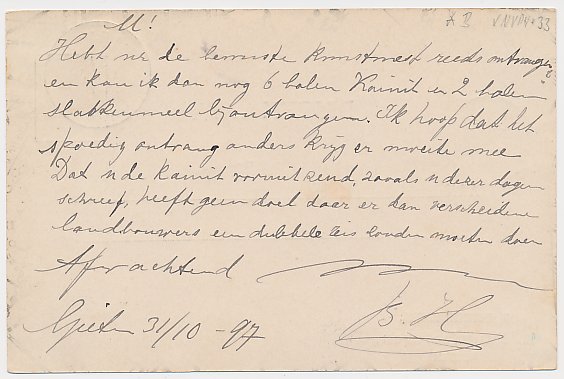 M!
Hebt u de bewuste kunstmest reeds ontvangen
en kan ik dan nog 6 balen Kainit en 2 balen
slakkenmeel bijontvangen. Ik hoop dat het
spoedig ontvang anders krijg er moeite mee
Dat u de Kainit vooruitzend, zooals u dezer dagen
schreef, heeft geen doel daar er dan verscheidene
landbouwers een dubbele reis zouden moeten doen
Afwachtend
B. H
Gieten 31/10 - 97